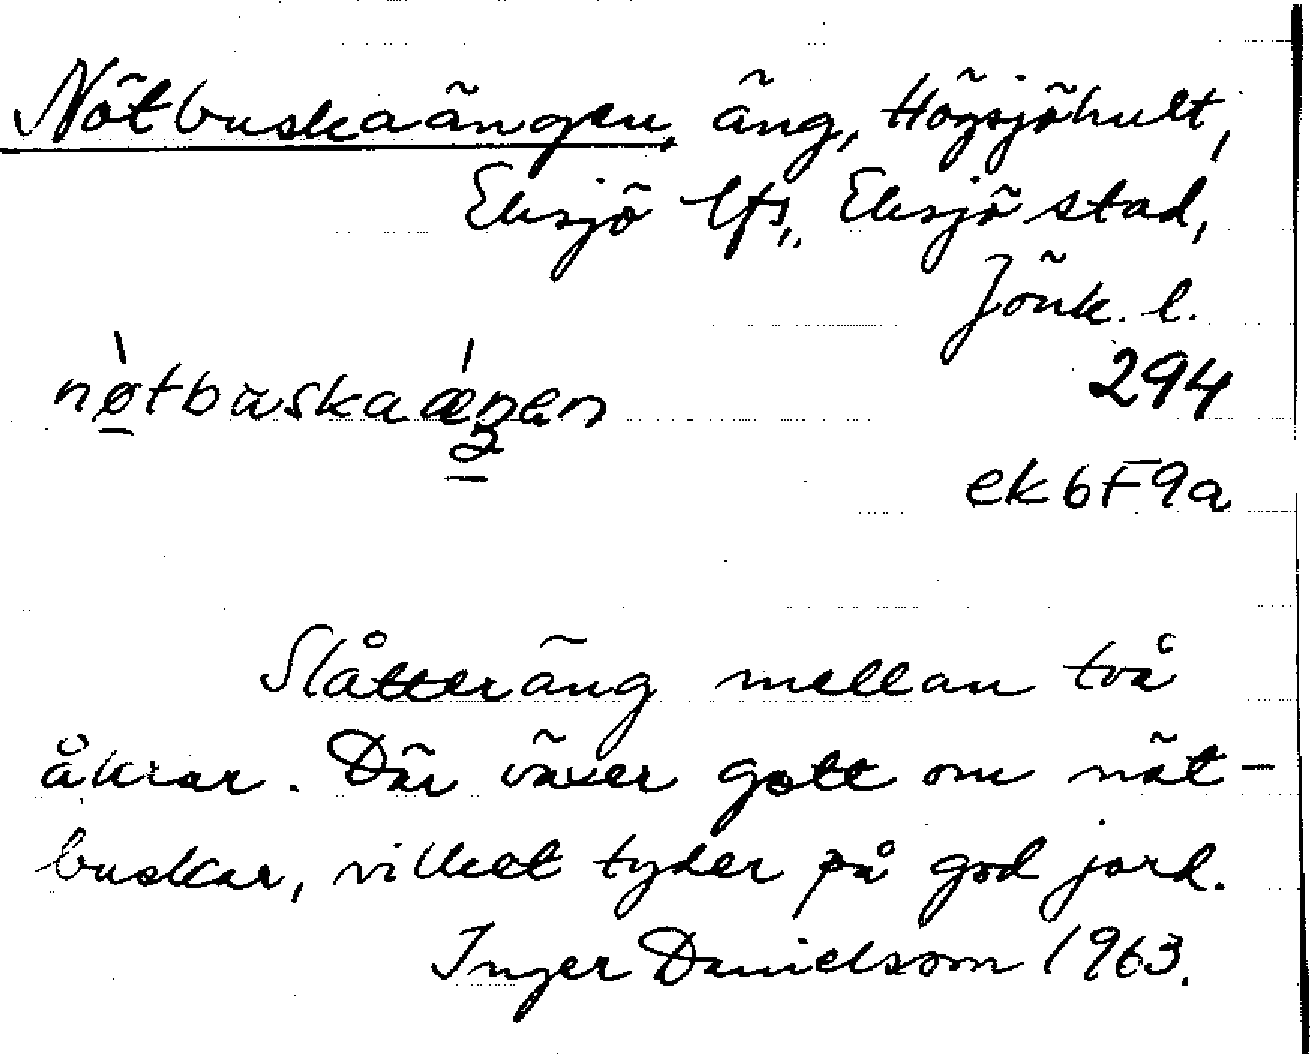 Nötbuskaängen, äng, Högsjöhult,
Eksjö lfs., Eksjö stad,
Jönk. l.
nǿtbuskaǽŋen
294
ek 6F9a
Slåtteräng mellan två
åkrar. Där växer gott om nöt-
buskar, vilket tyder på god jord.
Inger Danielsson 1963.